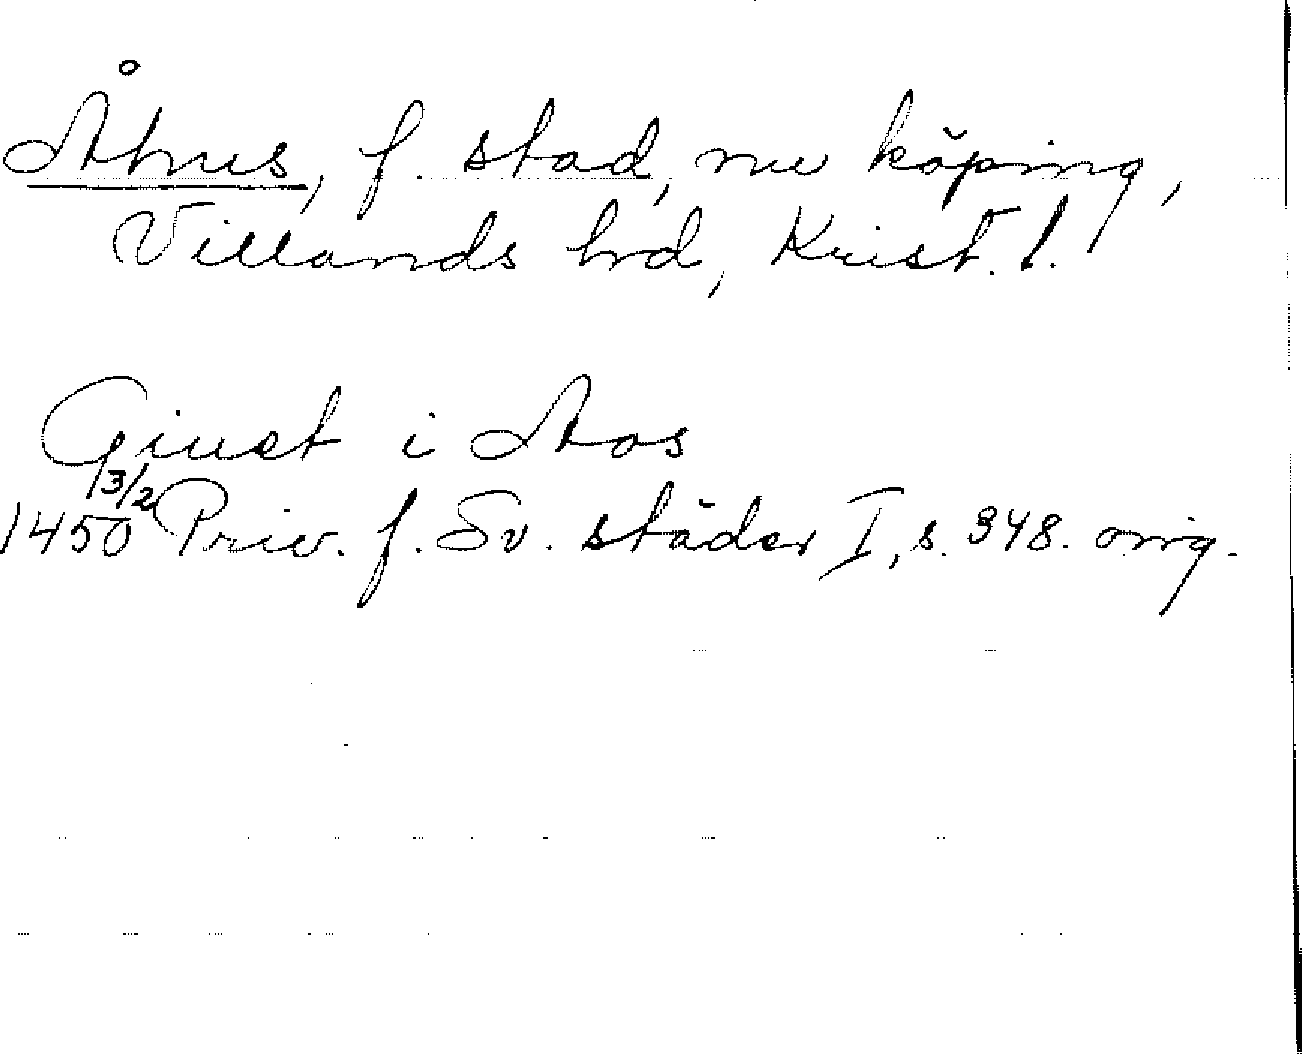 Åhus, f. stad, nu köping,
Villands hd, Krist. l.
Giuet i Aos
1450 13/2 Priv. f. Sv. städer I, s. 348. orig.